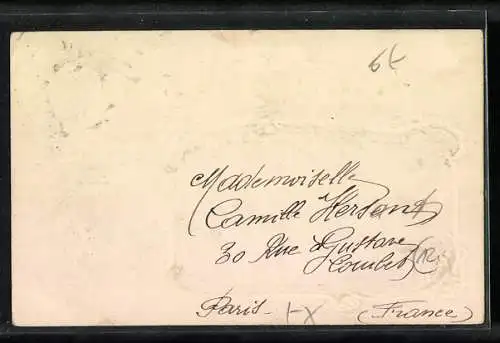 6t
Mademoiselle
Camille Hersent
30 Rue Gustave
Courbet
Paris (France)